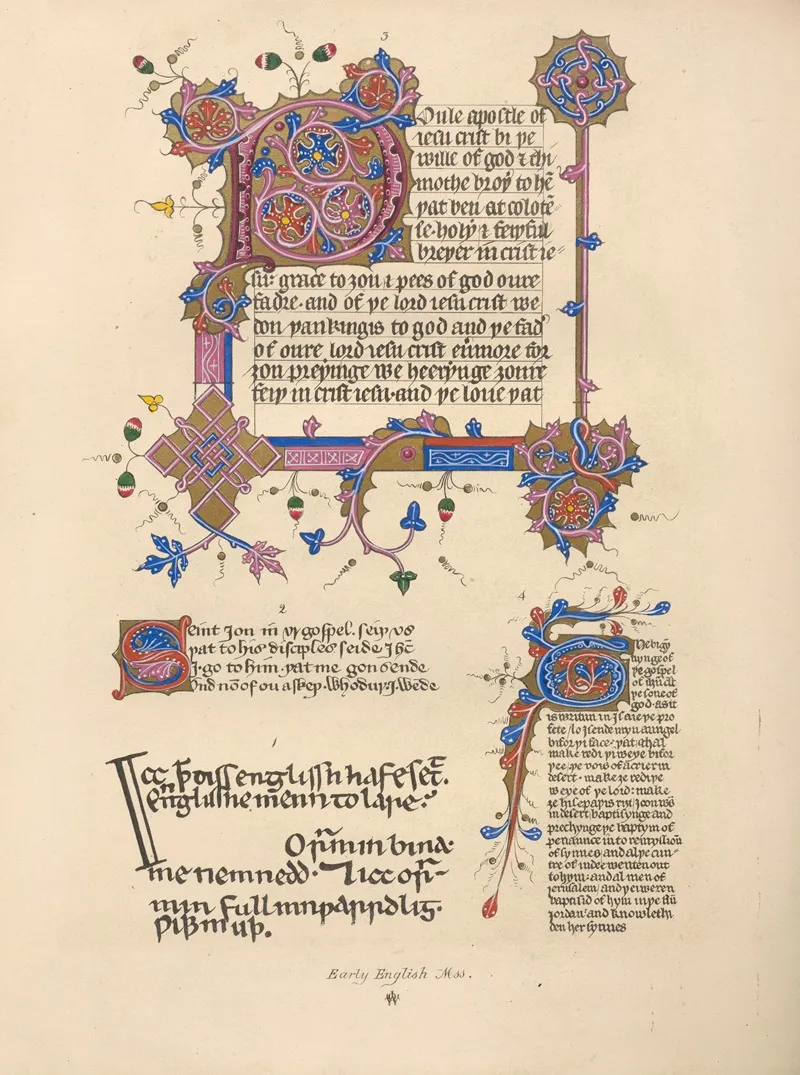 3
Poule apostle of
iesu crist bi þe
wille of god ⁊ thi
mothe broþ̉ to hē
þat ben at colocē
se·holy ⁊ feiþful
breþer in crist ie⸗
su: grace to ȝou ⁊ pees of god oure
fadre·and of þe lord iesu crist we
don þankingis to god and þe fad̉
of oure lord iesu crist eūmore for
ȝon preyinge we heerynge ȝoure
feiþ in crist iesu·and þe loue þat
2
Seint Jon in þy gospel. seiþ vs
þat to his disciples seide Ihc̄
I·go to him·þat me gon sende
And nō of ou askeþ·Whodur·I·wede
1
Icc þ̄ þiss ennglissh hafe sett.
ennglisshe menn to lare·
O
min bin a·
me nemnedd· Icc
min full innwarrdlig·
4
The bigȳ
nynge of
þe gospel
of ihū crist
þe sone of
god·as it
is writun in Isaie þe pro
fete/lo I sende myn aungel
bifor þi face·þat shal
make redi þi weye bifor
þee·þe vois of a crier in
desert·make ȝe redi þe
weye of þe lord: make
ȝe hise paþis riȝt/Joon was
in desert baptisynge and
prechynge þe baptym of
penaunce in to remyssioū
of synnes·and al þe cun⸗
tre of iudee wenten out
to hym·and al men of
ierusalem/and þei weren
baptisid of hym in þe flū
iordan/and knowlechi
den her synnes
Early English Mss.